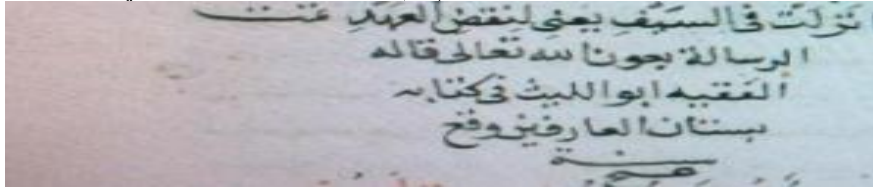 نزلت في السيف يعني لنقض العهد تمت
الرسالة بعون الله تعالى قاله
الفقيه ابو الليث في كتابه
بستان العارفين وفخ